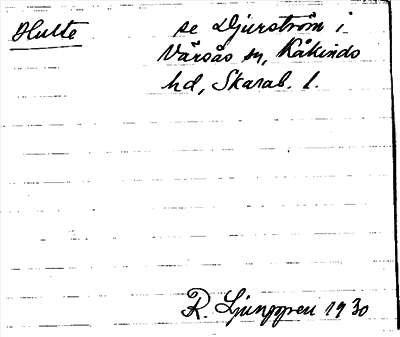 Hulte
se Djurström i
Värsås sn, Kåkinds
hd, Skarab. l.
R. Ljunggren 1930